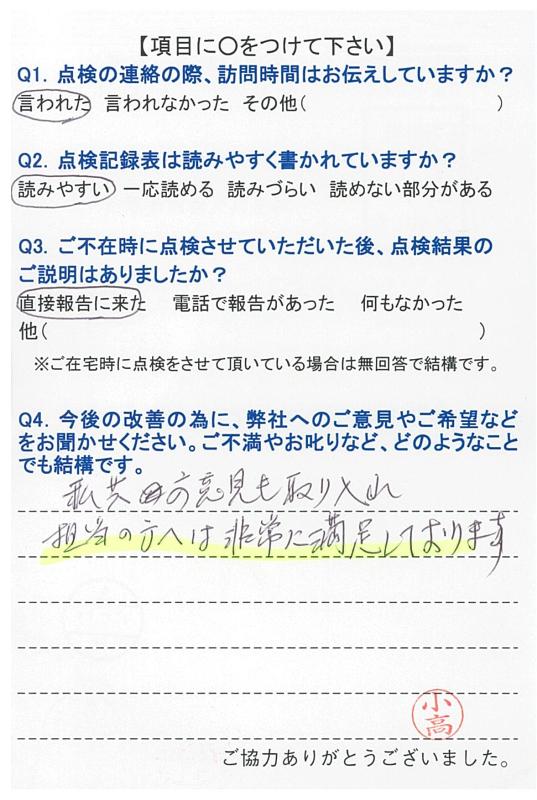 【項目に○をつけて下さい】
Q1. 点検の連絡の際、訪問時間はお伝えしていますか？
言われた 言われなかった その他( )
Q2. 点検記録表は読みやすく書かれていますか？
読みやすい 一応読める 読みづらい 読めない部分がある
Q3. ご不在時に点検させていただいた後、点検結果の
ご説明はありましたか？
直接報告に来た 電話で報告があった 何もなかった
他( )
※ご在宅時に点検をさせて頂いている場合は無回答で結構です。
Q4. 今後の改善の為に、弊社へのご意見やご希望など
をお聞かせください。ご不満やお叱りなど、どのようなこと
でも結構です。
私共の意見も取り入れ
担当の方へは非常に満足しております
小高
ご協力ありがとうございました。